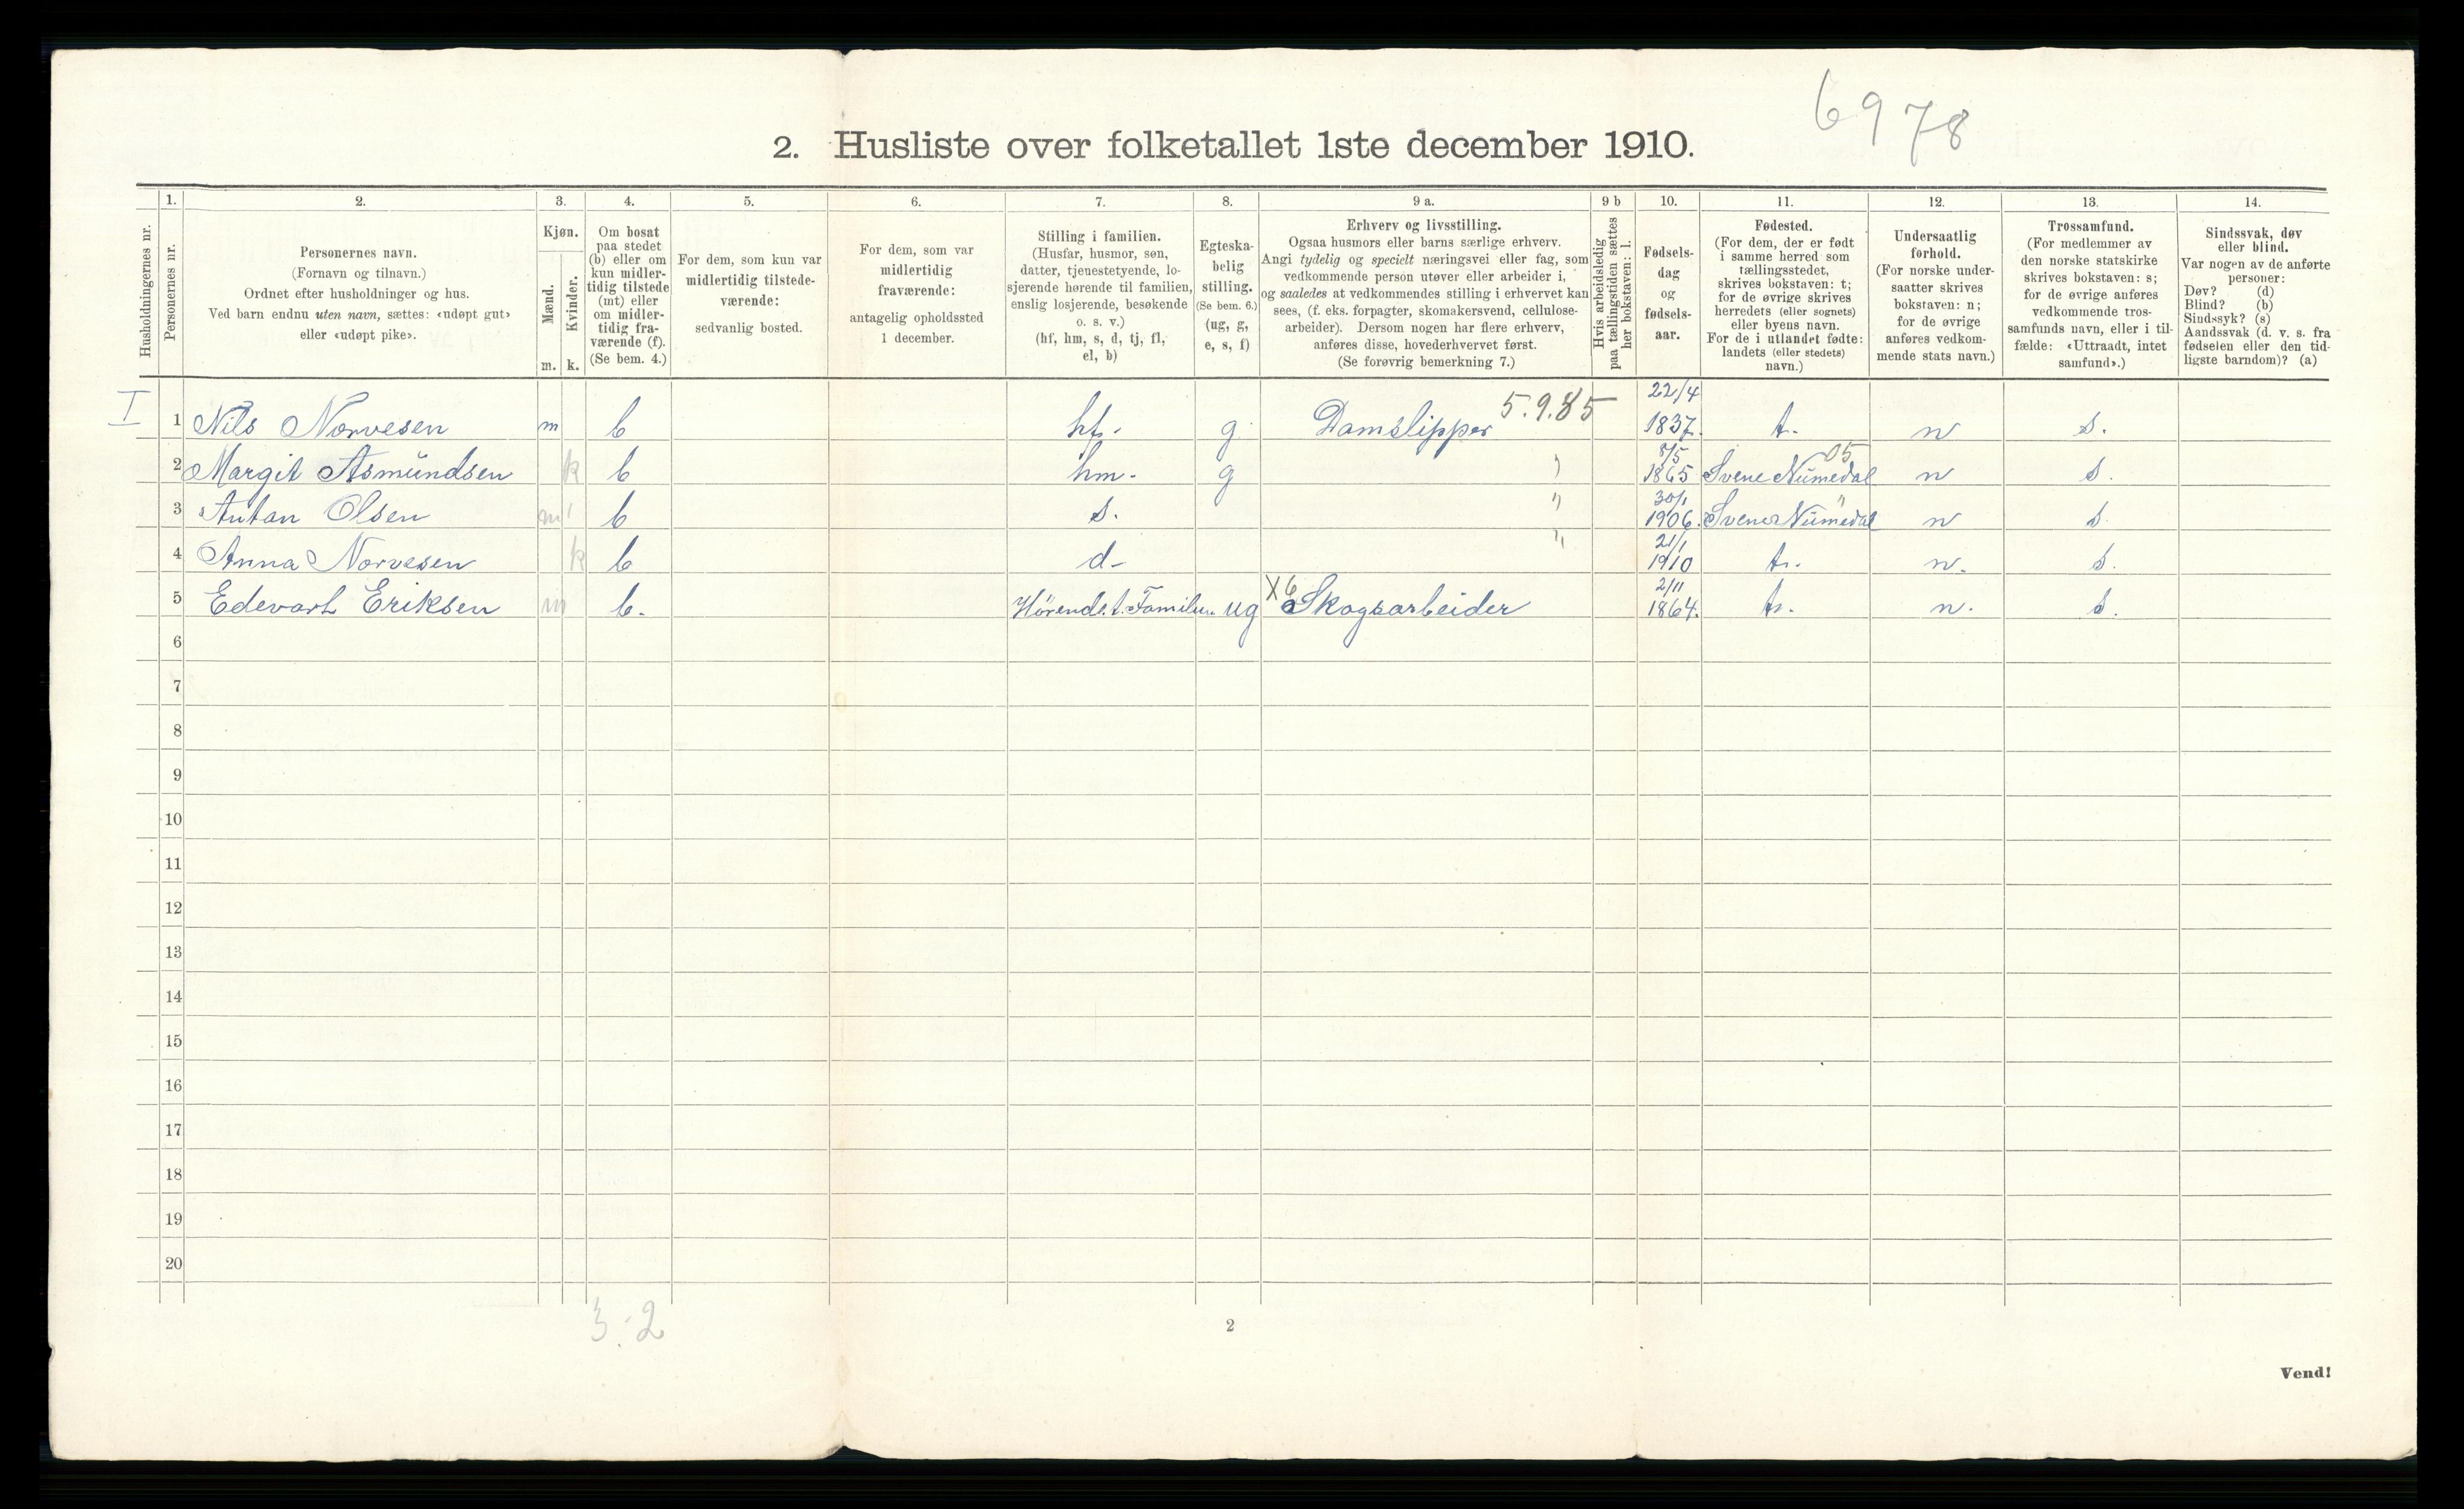 6978
2. Husliste over folketallet 1ste december 1910.
Husholdningernes nr.
1. Personernes nr.
2. Personernes navn.
(Fornavn og tilnavn.)
Ordnet efter husholdninger og hus.
Ved barn endnu uten navn, sættes: «udøpt gut»
eller «udøpt pike».
3. Kjøn.
Mænd. m.
Kvinder. k.
4. Om bosat
paa stedet
(b) eller om
kun midler-
tidig tilstede
(mt) eller
om midler-
tidig fra-
værende (f).
(Se bem. 4.)
5. For dem, som kun var
midlertidig tilstede-
værende:
sedvanlig bosted.
6. For dem, som var
midlertidig
fraværende:
antagelig opholdssted
1 december.
7. Stilling i familien.
(Husfar, husmor, søn,
datter, tjenestetyende, lo-
sjerende hørende til familien,
enslig losjerende, besøkende
o. s. v.)
(hf, hm, s, d, tj, fl,
el, b)
8. Egteska-
belig
stilling.
(Se bem. 6.)
(ug, g,
e, s, f)
9 a. Erhverv og livsstilling.
Ogsaa husmors eller barns særlige erhverv.
Angi tydelig og specielt næringsvei eller fag, som
vedkommende person utøver eller arbeider i,
og saaledes at vedkommendes stilling i erhvervet kan
sees, (f. eks. forpagter, skomakersvend, cellulose-
arbeider). Dersom nogen har flere erhverv,
anføres disse, hovederhvervet først.
(Se forøvrig bemerkning 7.)
9 b Hvis arbeidsledig
paa tællingstiden sættes
her bokstaven: l.
10. Fødsels-
dag
og
fødsels-
aar.
11. Fødested.
(For dem, der er født
i samme herred som
tællingsstedet,
skrives bokstaven: t;
for de øvrige skrives
herredets (eller sognets)
eller byens navn.
For de i utlandet fødte:
landets (eller stedets)
navn.)
12. Undersaatlig
forhold.
(For norske under-
saatter skrives
bokstaven: n;
for de øvrige
anføres vedkom-
mende stats navn.)
13. Trossamfund.
(For medlemmer av
den norske statskirke
skrives bokstaven: s;
for de øvrige anføres
vedkommende tros-
samfunds navn, eller i til-
fælde: «Uttraadt, intet
samfund».)
14. Sindssvak, døv
eller blind.
Var nogen av de anførte
personer:
Døv? (d)
Blind? (b)
Sindssyk? (s)
Aandssvak (d. v. s. fra
fødselen eller den tid-
ligste barndom)? (a)
I 1 Nils Norvesen m b hf. g Damslipper 5.9.85 22/4 1837. t. n s.
2 Margit Asmundsen k b hm. g " 8/5 1865 Svene Numedal 05 n s.
3 Antan Olsen m b s. " 30/1 1906. Svene Numedal " n s.
4 Anna Norvesen k b d- " 21/1 1910 t. n. s.
5 Edevart Eriksen m b. Hørends. t. Familien. ug X6 Skogsarbeider 2/11 1864. t. n. s.
6
7
8
9
10
11
12
13
14
15
16
17
18
19
20
3-2
2
Vend!